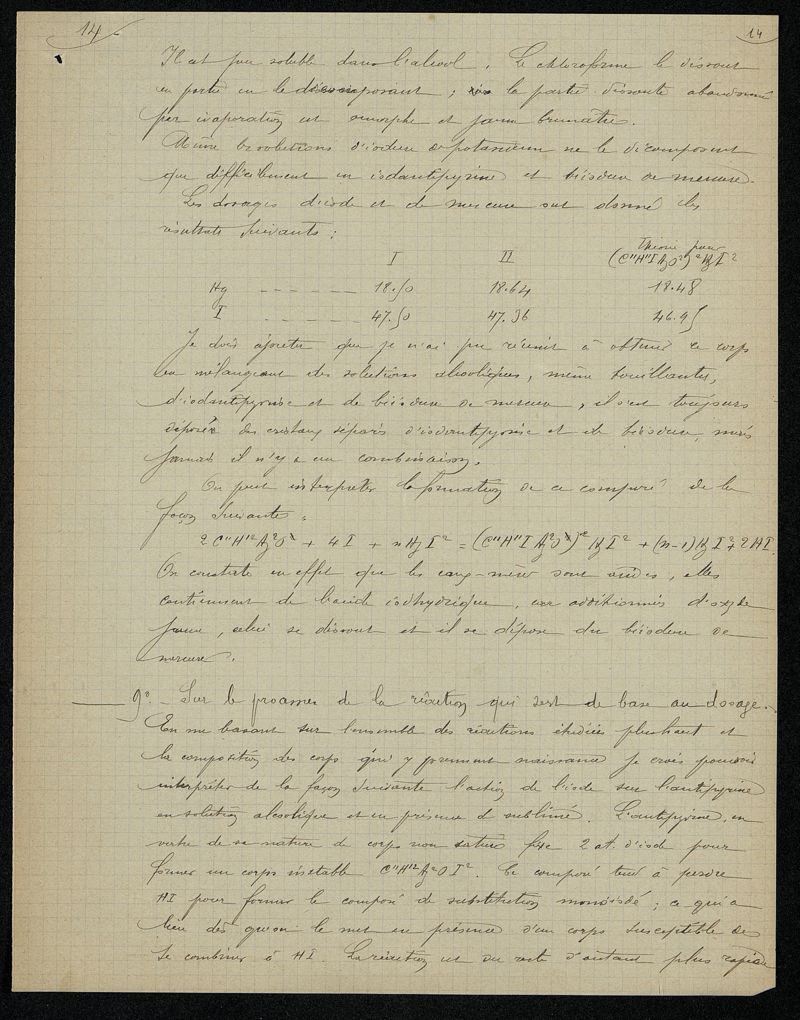 14 14
Il est peu soluble dans l'alcool. Le chloroforme le dissout
en partie en le décomposant ; la partie dissoute abandonnée
par évaporation est amorphe et jaune brunâtre.
Même les solutions d'iodure de potassium ne le décomposent
que difficilement en iodantipyrine et biiodure de mercure.
Les dosages d'iode et de mercure ont donné les
résultats suivants :
I II Théorie pour (C¹¹H¹¹IAz²O)²HgI²
Hg - - - - - - 18.50 18.64 18.48
I - - - - - - 47.50 47.36 46.95
Je dois ajouter que je n'ai pu réussir à obtenir ce corps
en mélangeant des solutions alcooliques, même bouillantes,
d'iodantipyrine et de biiodure de mercure, il s'est toujours
déposé des cristaux séparés d'iodantipyrine et de biiodure, mais
jamais il n'y a eu combinaison.
On peut interpréter la formation de ce composé de la
façon suivante :
2 C¹¹H¹²Az²O + 4I + nHgI² = (C¹¹H¹¹IAz²O)²HgI² + (n-1)HgI² + 2HI.
On constate en effet que les eaux-mères sont acides, elles
contiennent de l'acide iodhydrique, car additionnées d'oxyde
jaune, celui se dissout et il se dépose du biiodure de
mercure.
9°. - Sur le processus de la réaction qui sert de base au dosage.
En me basant sur l'ensemble des réactions étudiées plus haut et
la composition des corps qui y prennent naissance je crois pouvoir
interpréter de la façon suivante l'action de l'iode sur l'antipyrine
en solution alcoolique et en présence de sublimé. L'antipyrine, en
vertu de sa nature de corps non saturé fixe 2 at. d'iode pour
former un corps instable C¹¹H¹²Az²OI². Ce composé tend à perdre
HI pour former le composé de substitution monoiodé ; ce qui a
lieu dès qu'on le met en présence d'un corps susceptible de
se combiner à HI. La réaction est du reste d'autant plus rapide